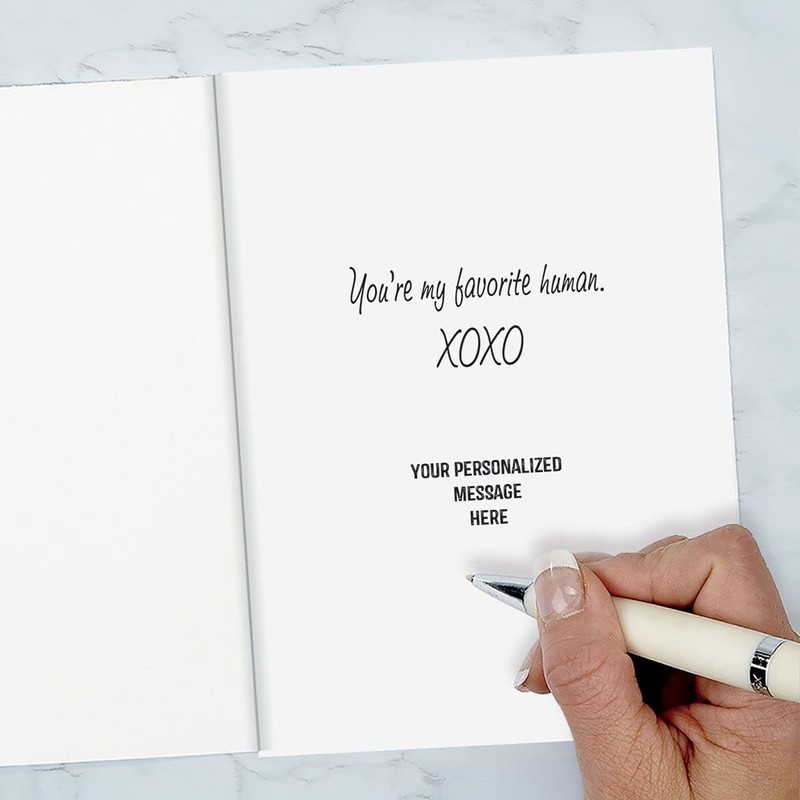 You're my favorite human.
XOXO
YOUR PERSONALIZED
MESSAGE
HERE